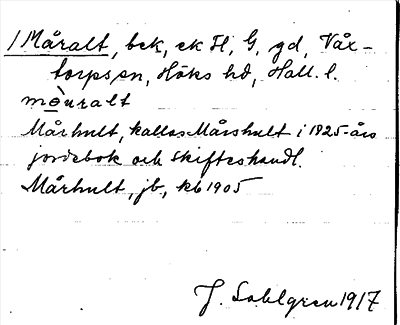 / Måralt, bek, ek Fl, G, gd, Våx-
torps sn, Höks hd, Hall. l.
mòuralt
Mårhult, kallas Mårshult i 1825-års
jordebok och skifteshandl.
Mårhult, jb, kb 1905
J. Sahlgren 1917